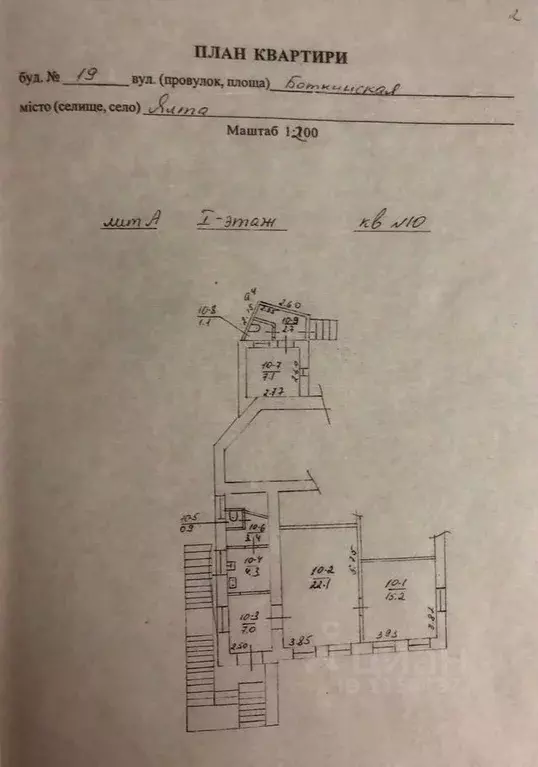 2
ПЛАН КВАРТИРИ
буд. № 19 вул. (провулок, площа) Боткинская
місто (селище, село) Ялта
Маштаб 1:200
лит А I-этаж кв №10
а4
2.60
10-8
1.1
10-9
2.7
10-7
7.1
2.77
2.60
10-5
0.9
10-6
3.4
10-4
4.3
10-2
22.1
5.75
10-1
15.2
10-3
7.0
2.50
3.85
3.93
3.82